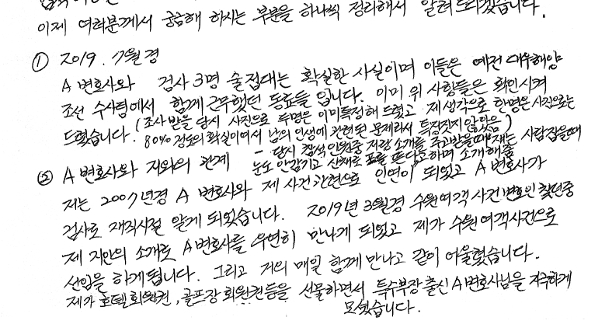 이제 여러분께서 궁금해 하시는 부분을 하나씩 정리해서 알려드리겠습니다.
① 2019. 7월경
A 변호사와 검사 3명 술접대는 확실한 사실이며 이들은 예전 대우해양
조선 수사팀에서 함께 근무했던 동료들 입니다. 이미 위 사람들은 확인시켜
드렸습니다. (조사 받을 당시 사진으로 두명은 이미 특정해 드렸고 제 생각으로 한명은 사진으로는
80% 정도의 확실이여서 남의 인생에 관련된 문제라서 특정짓지 않았음)
② A 변호사와 저와의 관계 - 당시 참석 인원중 저랑 소개를 주고받을때 쟤는 사람 잡을때
눈도 안감기고 산채로 포를 뜬다고 하며 소개해줌
저는 2007년경 A 변호사와 제 사건 관련으로 인연이 되었고 A 변호사가
검사로 재직시절 알게 되었습니다. 2019년 3월경 수원여객 사건 변호인 찾던중
제 지인의 소개로 A변호사를 우연히 만나게 되었고 제가 수원여객사건으로
선임을 하게됩니다. 그리고 거의 매일 함께 만나고 같이 어울렸습니다.
제가 호텔 회원권, 골프장 회원권등을 선물하면서 특수부장 출신 A변호사님을 지극하게
모셨습니다.